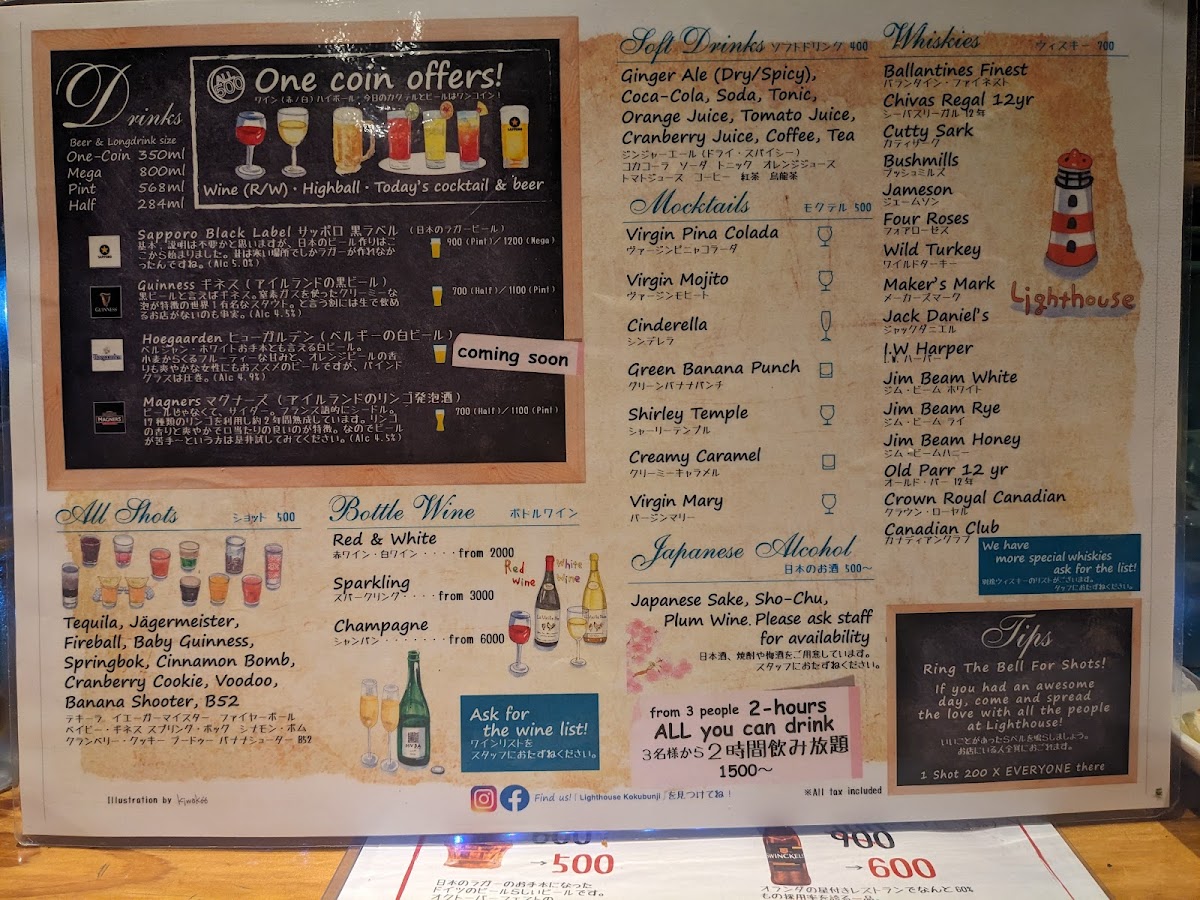 Drinks
Beer & Longdrink size
One-Coin 350ml
Mega 800ml
Pint 568ml
Half 284ml
ALL 500
One coin offers!
ワイン(赤/白)ハイボール・今日のカクテルとビールはワンコイン!
Wine (R/W)・Highball・Today's cocktail & beer
Sapporo Black Label サッポロ 黒ラベル (日本のラガービール)
基本、説明は不要かと思いますが、日本のビール作りはこ
こから始まりました。昔は寒い場所でしかラガーが作れなか
ったんですね。(Alc 5.0%)
900 (Pint)/1200 (Mega)
GUINNESS
Guinness ギネス (アイルランドの黒ビール)
黒ビールと言えばギネス。窒素ガスを使ったクリーミーな
泡が特徴の世界1有名なスタウト。と言う割には生で飲め
るお店がないのも事実。(Alc 4.5%)
700 (Half)/1100 (Pint)
Hoegaarden
Hoegaarden ヒューガルデン (ベルギーの白ビール)
ベルジャン・ホワイトお手本とも言える白ビール。
小麦からくるフルーティーな甘みと、オレンジピールの香
りも爽やかな女性にもおススメのビールですが、パインド
グラスは圧巻。(Alc 4.9%)
coming soon
MAGNERS
Magners マグナース (アイルランドのリンゴ発泡酒)
ビールじゃなくて、サイダー。フランス語的にシードル。
17種類のリンゴを利用し約2年間熟成しています。リンゴ
の香りと爽やかで口当たりの良いのが特徴。なのでビール
が苦手〜という方は是非試してみてください。(Alc 4.5%)
700 (Half)/1100 (Pint)
All Shots ショット 500
Tequila, Jägermeister,
Fireball, Baby Guinness,
Springbok, Cinnamon Bomb,
Cranberry Cookie, Voodoo,
Banana Shooter, B52
テキーラ イエーガーマイスター ファイヤーボール
ベイビー・ギネス スプリング・ボック シナモン・ボム
クランベリー・クッキー ブードゥー バナナシューター B52
Bottle Wine ボトルワイン
Red & White
赤ワイン・白ワイン・・・・from 2000
Sparkling
スパークリング・・・・from 3000
Champagne
シャンパン・・・・・・・from 6000
Red wine
White Wine
Ask for
the wine list!
ワインリストを
スタッフにおたずねください。
Soft Drinks ソフトドリンク 400
Ginger Ale (Dry/Spicy),
Coca-Cola, Soda, Tonic,
Orange Juice, Tomato Juice,
Cranberry Juice, Coffee, Tea
ジンジャーエール(ドライ・スパイシー)
コカコーラ ソーダ トニック オレンジジュース
トマトジュース コーヒー 紅茶 烏龍茶
Mocktails モクテル 500
Virgin Pina Colada
ヴァージンピニャコラーダ
Virgin Mojito
ヴァージンモヒート
Cinderella
シンデレラ
Green Banana Punch
グリーンバナナパンチ
Shirley Temple
シャーリーテンプル
Creamy Caramel
クリーミーキャラメル
Virgin Mary
バージンマリー
Japanese Alcohol
日本のお酒 500〜
Japanese Sake, Sho-Chu,
Plum Wine. Please ask staff
for availability
日本酒、焼酎や梅酒をご用意しています。
スタッフにおたずねください。
from 3 people 2-hours
ALL you can drink
3名様から2時間飲み放題
1500〜
Whiskies ウィスキー 700
Ballantines Finest
バランタイン・ファイネスト
Chivas Regal 12yr
シーバスリーガル 12年
Cutty Sark
カティサーク
Bushmills
ブッシュミルズ
Jameson
ジェームソン
Four Roses
フォアローゼス
Wild Turkey
ワイルドターキー
Maker's Mark
メーカーズマーク
Jack Daniel's
ジャックダニエル
I.W Harper
I.W. ハーパー
Jim Beam White
ジム・ビーム ホワイト
Jim Beam Rye
ジム・ビーム ライ
Jim Beam Honey
ジム・ビームハニー
Old Parr 12 yr
オールド・パー 12年
Crown Royal Canadian
クラウン・ローヤル
Canadian Club
カナディアンクラブ
Lighthouse
We have
more special whiskies
ask for the list!
別途ウィスキーのリストがございます。
スタッフにおたずねください。
Tips
Ring The Bell For Shots!
If you had an awesome
day, come and spread
the love with all the people
at Lighthouse!
いいことがあったらベルを鳴らしましょう。
お店にいる人全員におごれます。
1 Shot 200 X EVERYONE there
※All tax included
Illustration by
Find us!「Lighthouse Kokubunji」を見つけてね!
→500
日本のラガーのお手本になった
ドイツのビールらしいビールです。
オクトーバーフェストの
900
→600
オランダの星付きレストランでなんと60%
もの採用率を誇る一品。